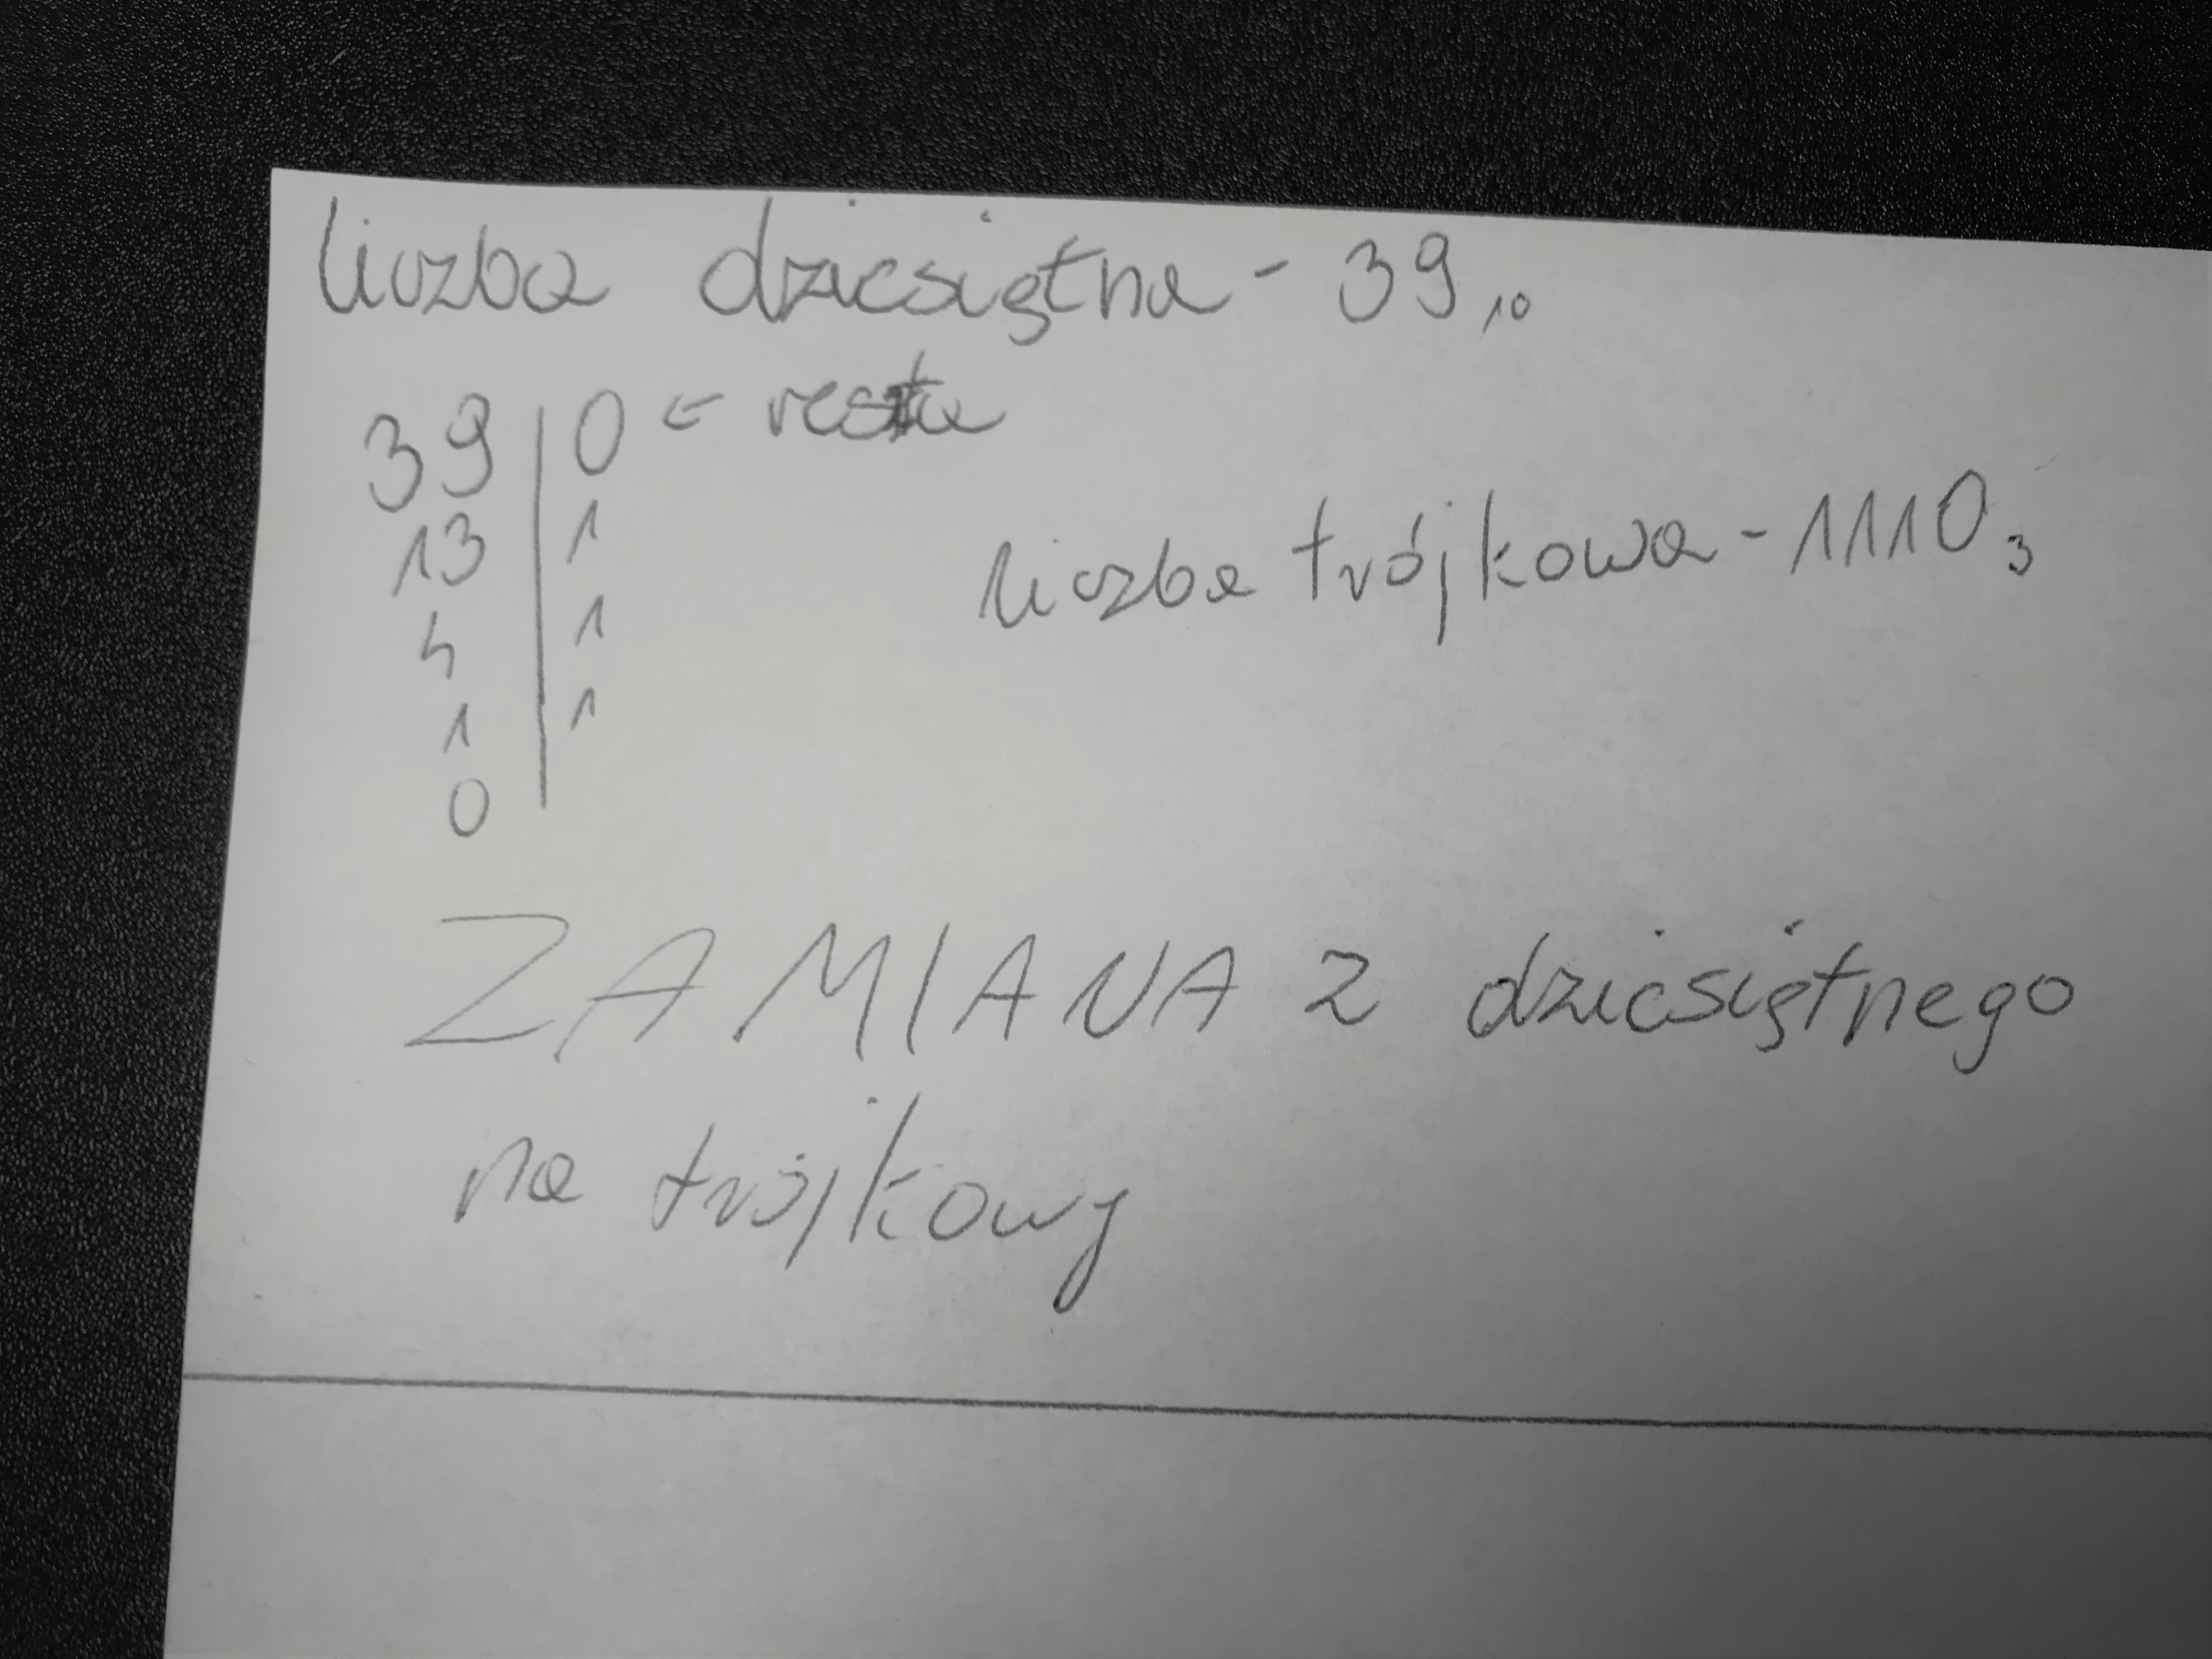 liczba dziesiętna - 39₁₀
39 | 0 ← reszta
13 | 1
4 | 1
1 | 1
0 |
liczba trójkowa - 1110₃
ZAMIANA z dziesiętnego
na trójkowy